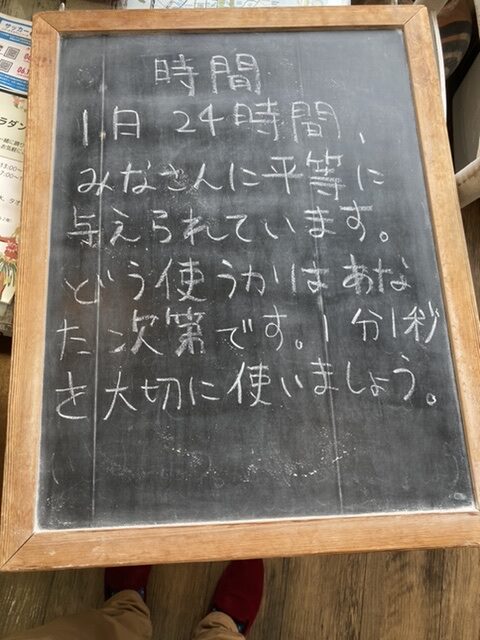 時間
1日 24時間、
みなさんに平等に
与えられています。
どう使うかはあな
た次第です。1分1秒
を大切に使いましょう。
サッカー
ラダン